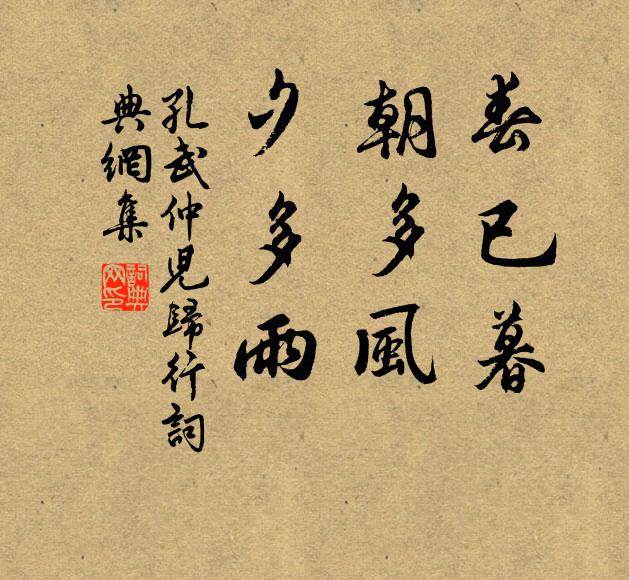 春已暮
朝多風
夕多雨
孔武仲兒歸行詞
典網集
詞典
网印